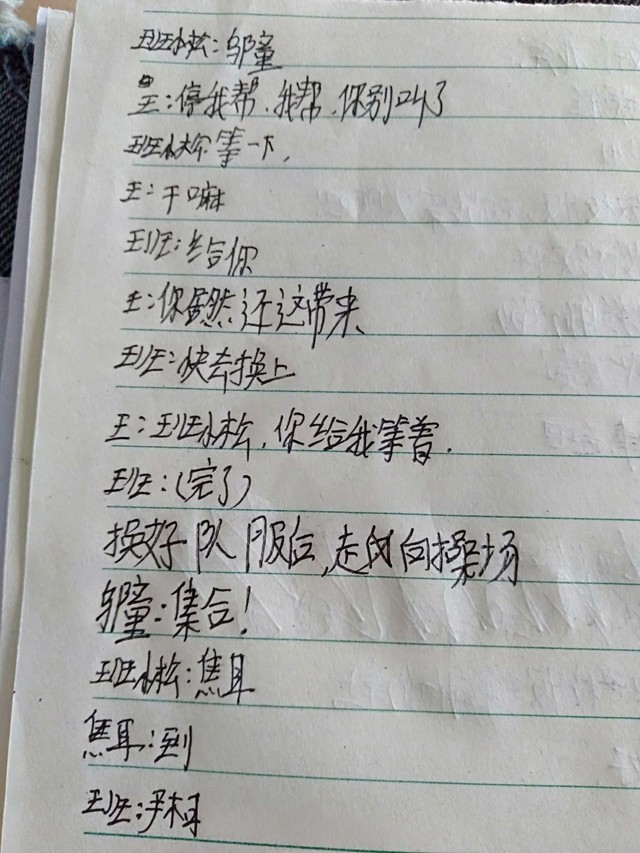 班小松：邬童
王：停我帮、我帮、你别叫了
班小松：等一下，
王：干嘛
班：给你
王：你竟然还这带来、
班：快去换上
王：班小松，你给我等着．
班：（完了）
换好队服后，走向操场
邬童：集合！
班小松：焦耳
焦耳：到
班：尹柯